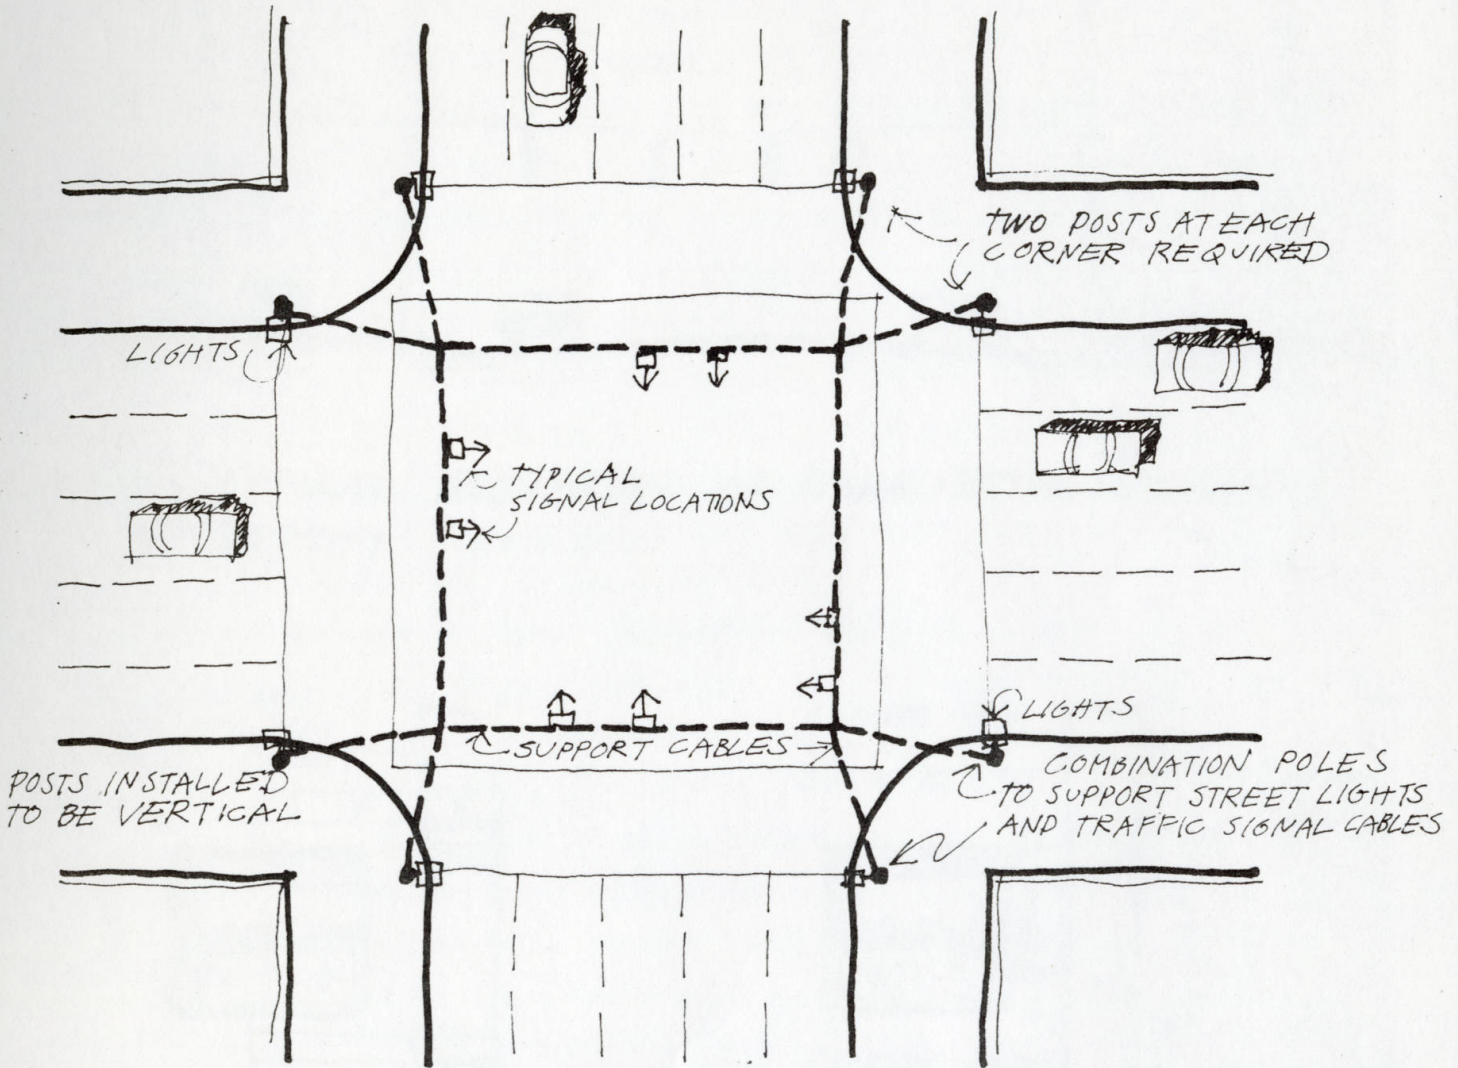 TWO POSTS AT EACH
CORNER REQUIRED
LIGHTS
TYPICAL
SIGNAL LOCATIONS
LIGHTS
SUPPORT CABLES
POSTS INSTALLED
TO BE VERTICAL
COMBINATION POLES
TO SUPPORT STREET LIGHTS
AND TRAFFIC SIGNAL CABLES